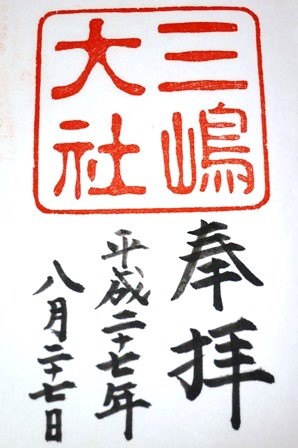 三嶋
大社
奉拝
平成二十七年
八月二十七日